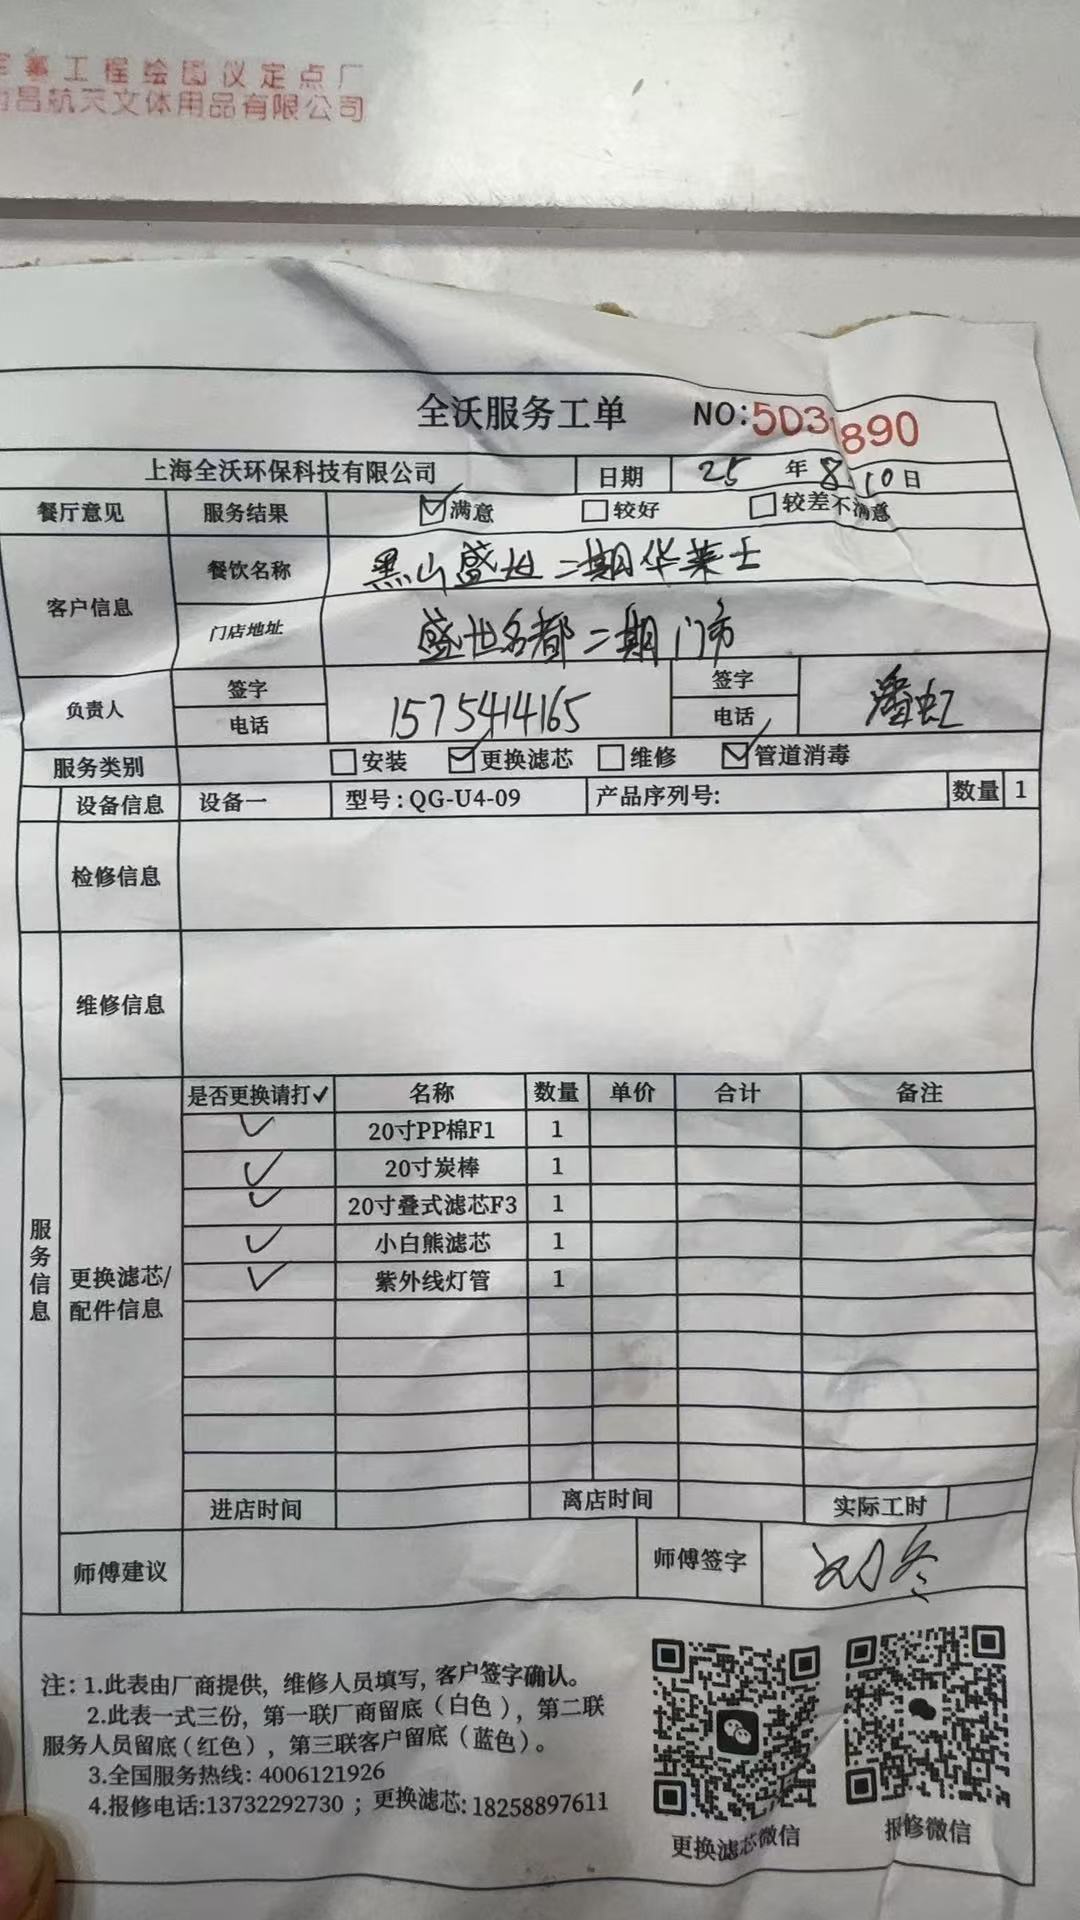 军事工程绘图仪定点厂
南昌航天文体用品有限公司
全沃服务工单 NO:5031890
上海全沃环保科技有限公司 日期 25 年 8.10日
餐厅意见 服务结果 ☑满意 □较好 □较差不满意
客户信息 餐饮名称 黑山盛世二期华莱士
门店地址 盛世名都二期门市
负责人 签字 签字 潘虹
电话 1575414165 电话
服务类别 □安装 ☑更换滤芯 □维修 ☑管道消毒
设备信息 设备一 型号:QG-U4-09 产品序列号: 数量 1
检修信息
维修信息
服务信息
更换滤芯/配件信息
是否更换请打✓ 名称 数量 单价 合计 备注
✓ 20寸PP棉F1 1
✓ 20寸炭棒 1
✓ 20寸叠式滤芯F3 1
✓ 小白熊滤芯 1
✓ 紫外线灯管 1
进店时间 离店时间 实际工时
师傅建议 师傅签字 刘冬
注:1.此表由厂商提供,维修人员填写,客户签字确认。
2.此表一式三份,第一联厂商留底(白色),第二联
服务人员留底(红色),第三联客户留底(蓝色)。
3.全国服务热线:4006121926
4.报修电话:13732292730;更换滤芯:18258897611
更换滤芯微信 报修微信